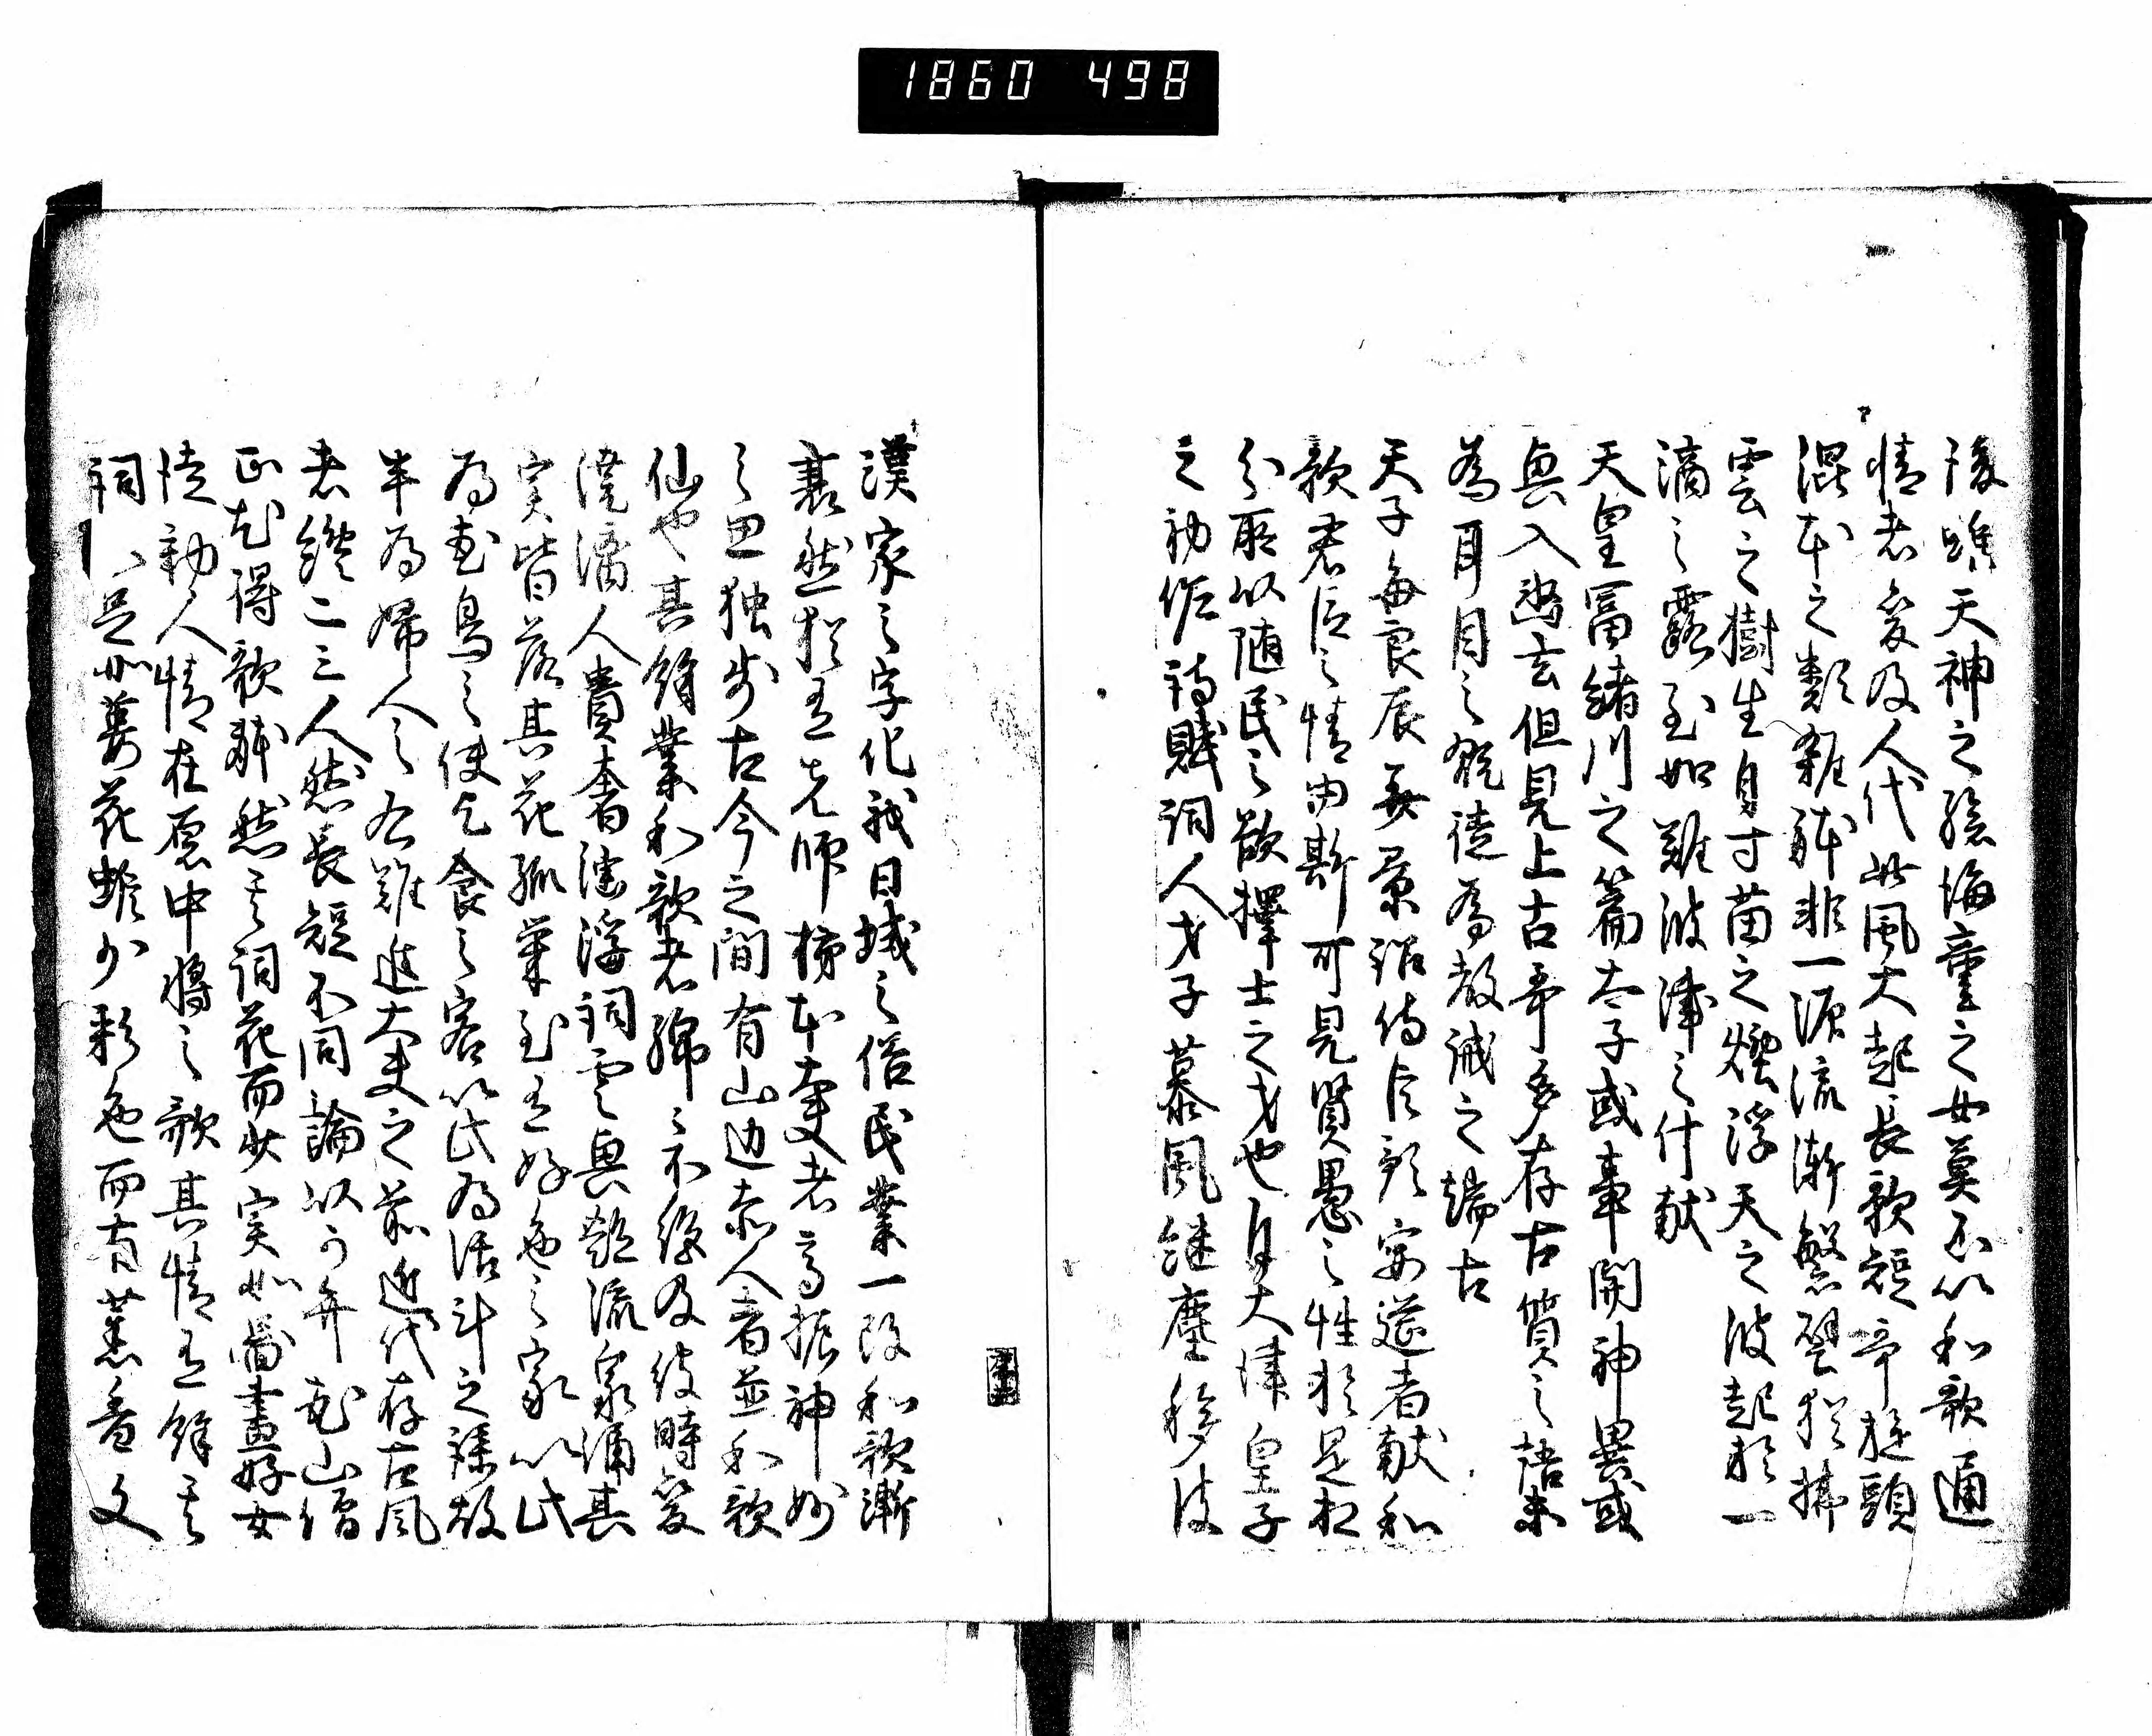 1860 498
後雖天神之孫海童之女莫不以和歌通
情者爰及人代此風大起長歌短哥旋頭
混本之類雑躰非一源流漸繁譬猶拂
雲之樹生自寸苗之煙浮天之波起於一
滴之露至如難波津之什献
天皇富緒川之篇太子或事関神異或
興入幽玄但見上古哥多存古質之語未
為耳目之翫徒為教誡之端古
天子毎良辰美景詔侍臣預宴莚者献和
歌君臣之情由斯可見賢愚之性於是相
分所以随民之欲擇士之才也自大津皇子
之初作詩賦詞人才子慕風継塵移彼
漢家之字化我日域之俗民業一改和歌漸
衰然猶有先師柿本大夫者高振神妙
之思独歩古今之間有山辺赤人者並和歌
仙也其餘業和歌者綿々不絶及彼時変
澆漓人貴奢淫浮詞雲興艶流泉涌其
実皆落其花孤栄至有好色之家以此
為花鳥之使乞食之客以此為活計之媒故
半為婦人之右難進大夫之前近代存古風
者纔二三人然長短不同論以可弁花山僧
正尤得歌躰然其詞花而少実如圖畫好女
徒動人情在原中将之歌其情有餘其
詞不足如萎花雖少彩色而有薫香文